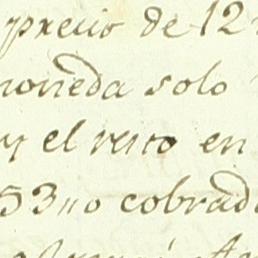 precio de 12
moneda solo
y el resto en
53 no cobrad